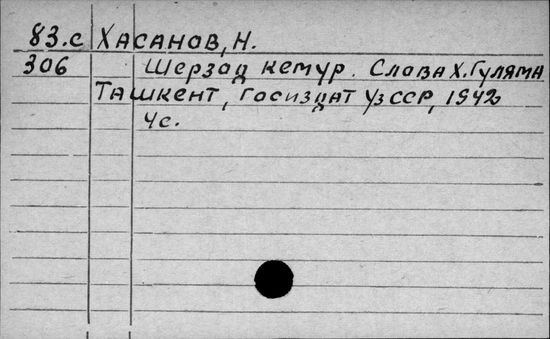 83.с ХАСАНОВ, Н.
306 Шерзод кетур. Слова Х. Гуляма
Ташкент, Госиздат УзССР, 1942
4с.